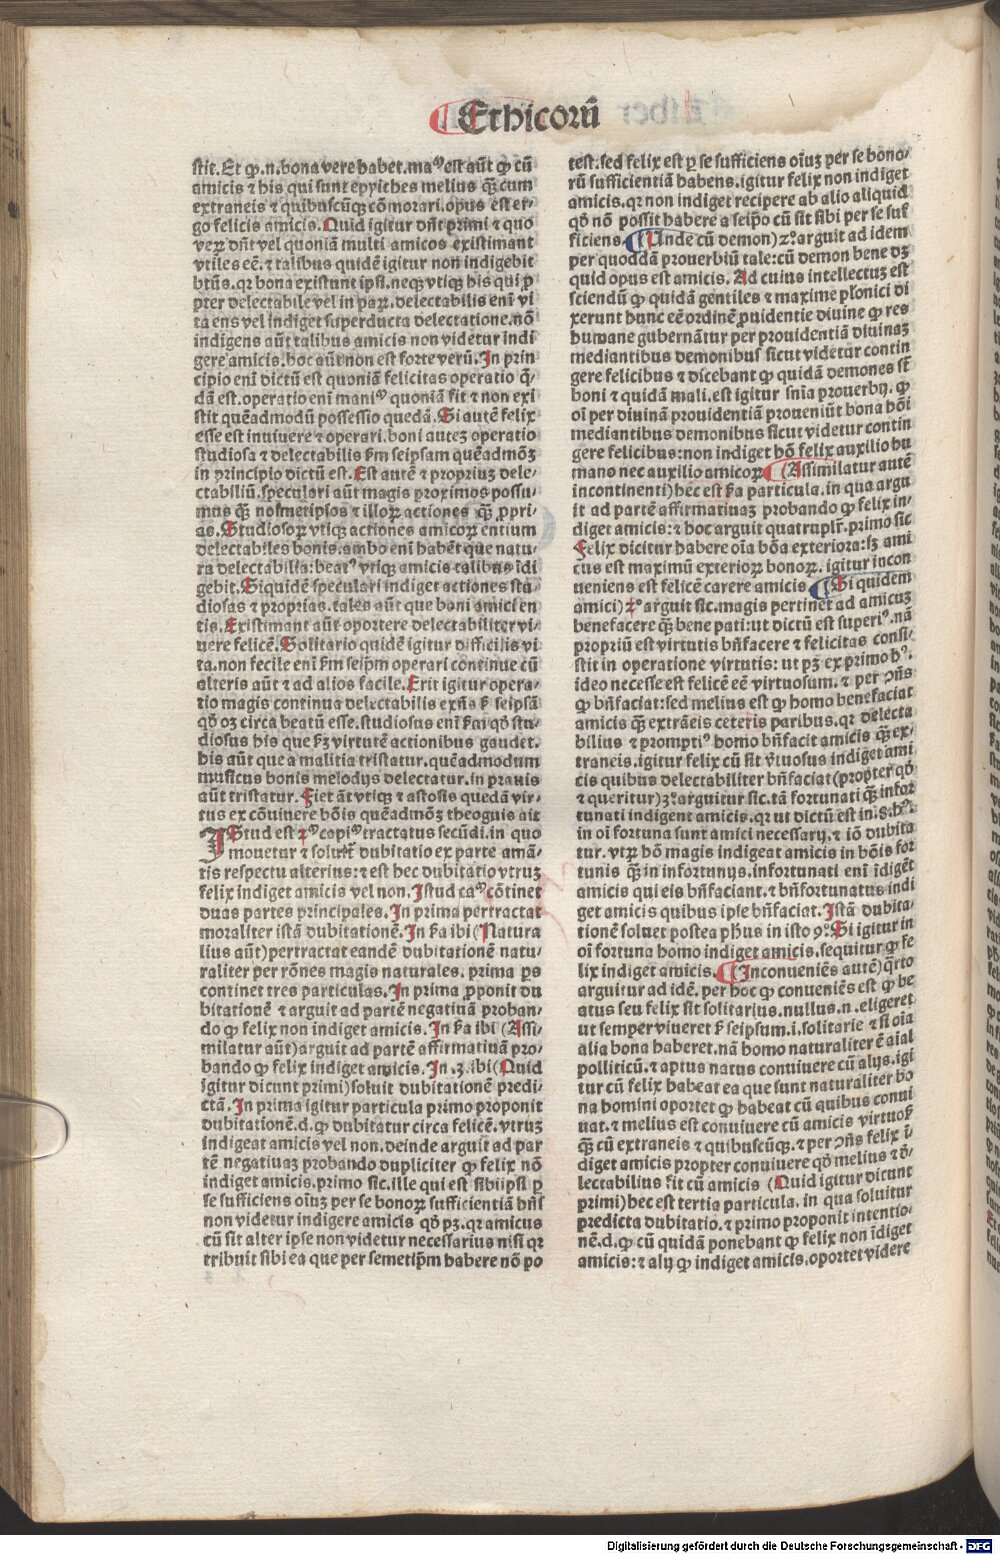 Ethicorū
stit. Et ꝙ.n. bona vere habet. maⁿ est aūt ꝙ cū
amicis ⁊ his qui sunt epyiches melius qꝫ cum
extraneis ⁊ quibuscūqꝫ cōmorari. opus est er-
go felicis amicis. Quid igitur dn̄t primi ⁊ quo
veꝝ dn̄t vel quoniā multi amicos existimant
vtiles eē. ⁊ talibus quidē igitur non indigebit
btūs. qꝛ bona existunt ipsi. neqꝫ vtiqꝫ his qui ꝓ
pter delectabile vel in paꝝ. delectabilis enī vi
ta ens vel indiget superducta delectatione. nō
indigens aūt talibus amicis non videtur indi
gere amicis. hoc aūt non est forte verū. In prin
cipio enī dictū est quoniā felicitas operatio q̄-
dā est. operatio enī maniꝰ quoniā fit ⁊ non exi
stit quēadmodū possessio quedā. Si autē felix
esse est inuiuere ⁊ operari. boni auteꝫ operatio
studiosa ⁊ delectabilis ẜm seipsam quēadmōꝫ
in principio dictū est. Est autē ⁊ propriuꝫ dele-
ctabiliū. speculari aūt magis proximos possu-
mus qꝫ nosmetipsos ⁊ illoꝝ actiones qꝫ ꝓpri-
as. Studiosoꝝ vtiqꝫ actiones amicoꝝ entium
delectabiles bonis. ambo enī habēt que natu-
ra delectabilia: beatꝰ vtiqꝫ amicis talibus īdi
gebit. Siquidē speculari indiget actiones stu-
diosas ⁊ proprias. tales aūt que boni amici en
tis. Existimant aūt oportere delectabiliter vi-
uere felicē. Solitario quidē igitur difficilis vi
ta. non fecile enī ẜm seip̄m operari continue cū
alteris aūt ⁊ ad alios facile. Erit igitur opera-
tio magis continua delectabilis exn̄s ẜ seipsā
qō oꝫ circa beatū esse. studiosus enī ẜm qō stu-
diosus his que ẜꝫ virtutē actionibus gaudet.
his aūt que a malitia tristatur. quēadmodum
musicus bonis melodys delectatur. in prauis
aūt tristatur. Fiet āt vtiqꝫ ⁊ astosis quedā vir-
tus ex cōuiuere bōis quēadmōꝫ theognis ait
IStud est ꝛᵐ capiᵐ tractatus secūdi. in quo
mouetur ⁊ soluit̄ dubitatio ex parte amā-
tis respectu alterius: ⁊ est hec dubitatio vtruꝫ
felix indiget amicis vel non. Istud caᵐ cōtinet
duas partes principales. In prima pertractat
moraliter istā dubitationē. In ẜa ibi (Natura
lius aūt) pertractat eandē dubitationē natu-
raliter per rōnes magis naturales. prima ps
continet tres particulas. In prima ꝓponit du
bitationē ⁊ arguit ad partē negatiuā proban-
do ꝙ felix non indiget amicis. In ẜa ibi (Assi-
milatur aūt) arguit ad partē affirmatiuā pro-
bando ꝙ felix indiget amicis. In .3. ibi (Quid
igitur dicunt primi) soluit dubitationē predi-
ctā. In prima igitur particula primo proponit
dubitationē. d. ꝙ dubitatur circa felicē. vtruꝫ
indigeat amicis vel non. deinde arguit ad par
tē negatiuaꝫ probando dupliciter ꝙ felix nō
indiget amicis. primo sic. ille qui est sibiipsi ꝑ
se sufficiens oīuꝫ per se bonoꝝ sufficientiā hn̄s
non videtur indigere amicis qō pꝫ. qꝛ amicus
cū sit alter ipse non videtur necessarius nisi qꝛ
tribuit sibi ea que per semetip̄m habere nō po
test. sed felix est ꝑ se sufficiens oīuꝫ per se bono-
rū sufficientiā habens. igitur felix non indiget
amicis. qꝛ non indiget recipere ab alio aliquid
qō nō possit habere a seip̄o cū sit sibi per se suf
ficiens. (Unde cū demon) 2ᵒ arguit ad idem
per quoddā prouerbiū tale: cū demon bene dꝫ
quid opus est amicis. Ad cuius intellectuꝫ est
sciendū ꝙ quidā gentiles ⁊ maxime plonici di
xerunt hunc eē ordinē ꝓuidentie diuine ꝙ res
humane gubernātur per prouidentiā diuinaꝫ
mediantibus demonibus sicut videtur contin
gere felicibus ⁊ dicebant ꝙ quidā demones st̄
boni ⁊ quidā mali. est igitur sn̄ia prouerbij. ꝙ
oī per diuinā prouidentiā proueniūt bona hōi
mediantibus demonibus sicut videtur contin
gere felicibus: non indiget hō felix auxilio hu
mano nec auxilio amicoꝝ (Assimilatur autē
incontinenti) hec est ẜa particula. in qua argu
it ad partē affirmatiuaꝫ probando ꝙ felix in-
diget amicis: ⁊ hoc arguit quatruplr̄. primo sic
Felix dicitur habere oīa bōa exteriora: sꝫ ami
cus est maximū exterioꝝ bonoꝝ. igitur incon
ueniens est felicē carere amicis. (Si quidem
amici) 2ᵒ arguit sic. magis pertinet ad amicuꝫ
benefacere qꝫ bene pati: ut dictū est superiꝰ. nā
propriū est virtutis bn̄facere ⁊ felicitas consi-
stit in operatione virtutis: ut pꝫ ex primo hꝰ.
ideo necesse est felicē eē virtuosum. ⁊ per ↄn̄s
ꝙ bn̄faciat: sed melius est ꝙ homo benefaciat
amicis qꝫ extrāeis ceteris paribus. qꝛ delecta
bilius ⁊ promptiꝰ homo bn̄facit amicis qꝫ ex-
traneis. igitur felix cū sit v̄tuosus indiget ami
cis quibus delectabiliter bn̄faciat (propter qō
⁊ queritur) 3ᵒ arguitur sic. tā fortunati qꝫ infor
tunati indigent amicis. qꝛ ut dictū est in .8. hꝰ.
in oī fortuna sunt amici necessarij. ⁊ iō dubita
tur. vtꝝ hō magis indigeat amicis in bōis for
tunis qꝫ in infortunijs. infortunati enī īdigēt
amicis qui eis bn̄faciant. ⁊ bn̄fortunatus indi
get amicis quibus ipse bn̄faciat. Istā dubita-
tionē soluet postea ph̄us in isto 9ᵒ. Si igitur in
oī fortuna homo indiget amicis. sequitur ꝙ fe
lix indiget amicis. (Inconueniēs autē) q̄rto
arguitur ad idē. per hoc ꝙ conueniēs est ꝙ be
atus seu felix sit solitarius. nullus .n. eligeret
ut semper viueret ẜ seipsum .i. solitarie ⁊ si oīa
alia bona haberet. nā homo naturaliter ē aīal
politticū. ⁊ aptus natus conuiuere cū alijs. igi
tur cū felix habeat ea que sunt naturaliter bo
na homini oportet ꝙ habeat cū quibus conui
uat. ⁊ melius est conuiuere cū amicis virtuoẜ
qꝫ cū extraneis ⁊ quibuscūqꝫ. ⁊ per ↄn̄s felix ī-
diget amicis propter conuiuere qō melius ⁊ d̄-
lectabilius fit cū amicis (Quid igitur dicunt
primi) hec est tertia particula. in qua soluitur
predicta dubitatio. ⁊ primo proponit intentio-
nē. d. ꝙ cū quidā ponebant ꝙ felix non īdiget
amicis: ⁊ alij ꝙ indiget amicis. oportet videre
Digitalisierung gefördert durch die Deutsche Forschungsgemeinschaft - DFG